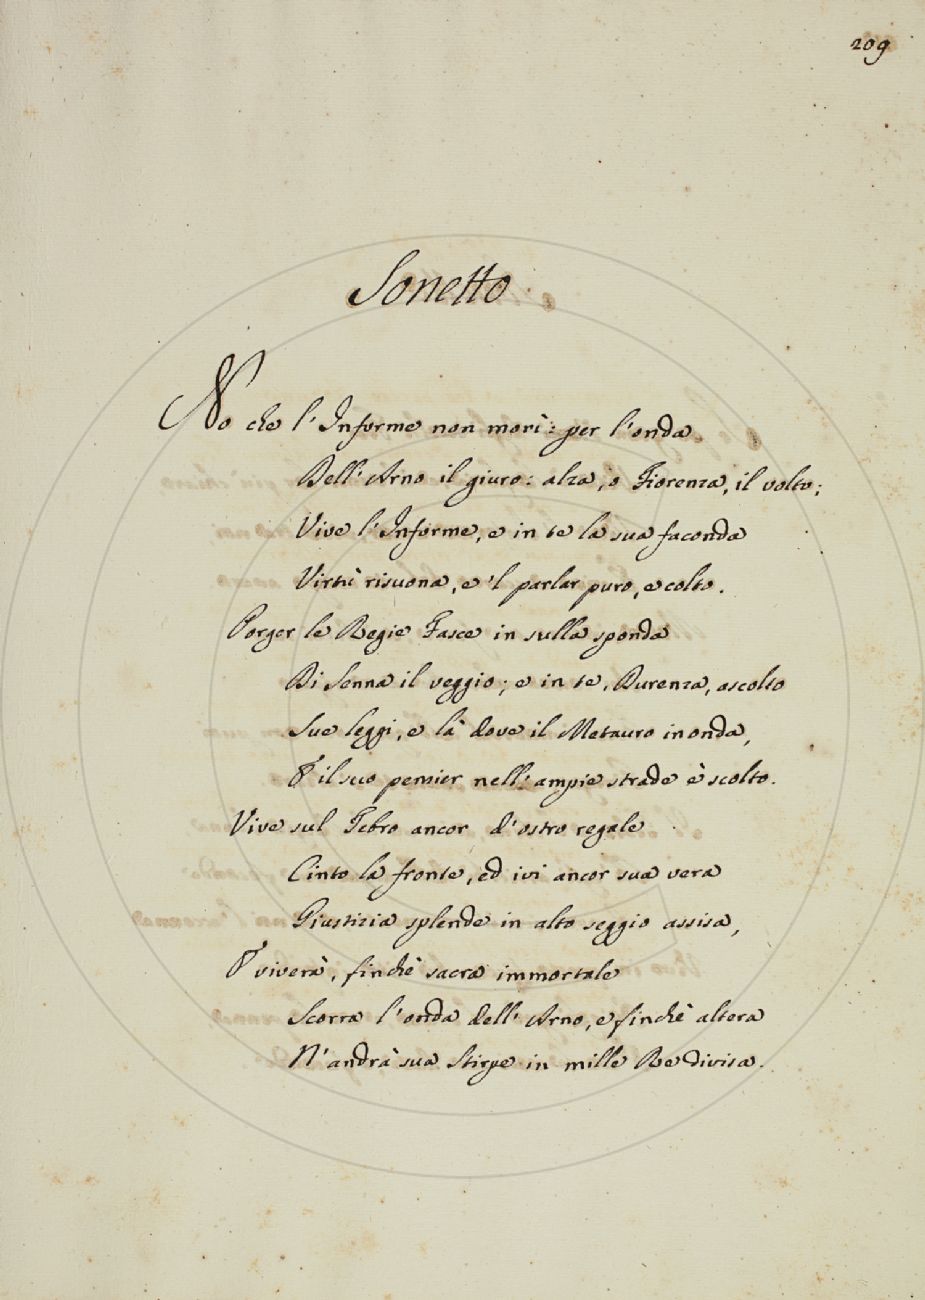 209
Sonetto
No che l'Informe non morì: per l'onda
Dell'Arno il giuro: alza, o Fiorenza, il volto;
Vive l'Informe, e in te la sua faconda
Virtù risuona, e 'l parlar puro, e colto.
Porger le Regie Fasce in sulla sponda
Di Senna il veggio; e in te, Durenza, ascolto
Sue leggi, e là dove il Metauro inonda,
E il suo pensier nell'ampie strade è scolto.
Vive sul Tebro ancor d'ostro regale
Cinto la fronte, ed ivi ancor sua vera
Giustizia splende in alto seggio assisa,
E viverà, finchè sacra immortale
Scorra l'onda dell'Arno, e finchè altera
N'andrà sua Stirpe in mille Re divisa.